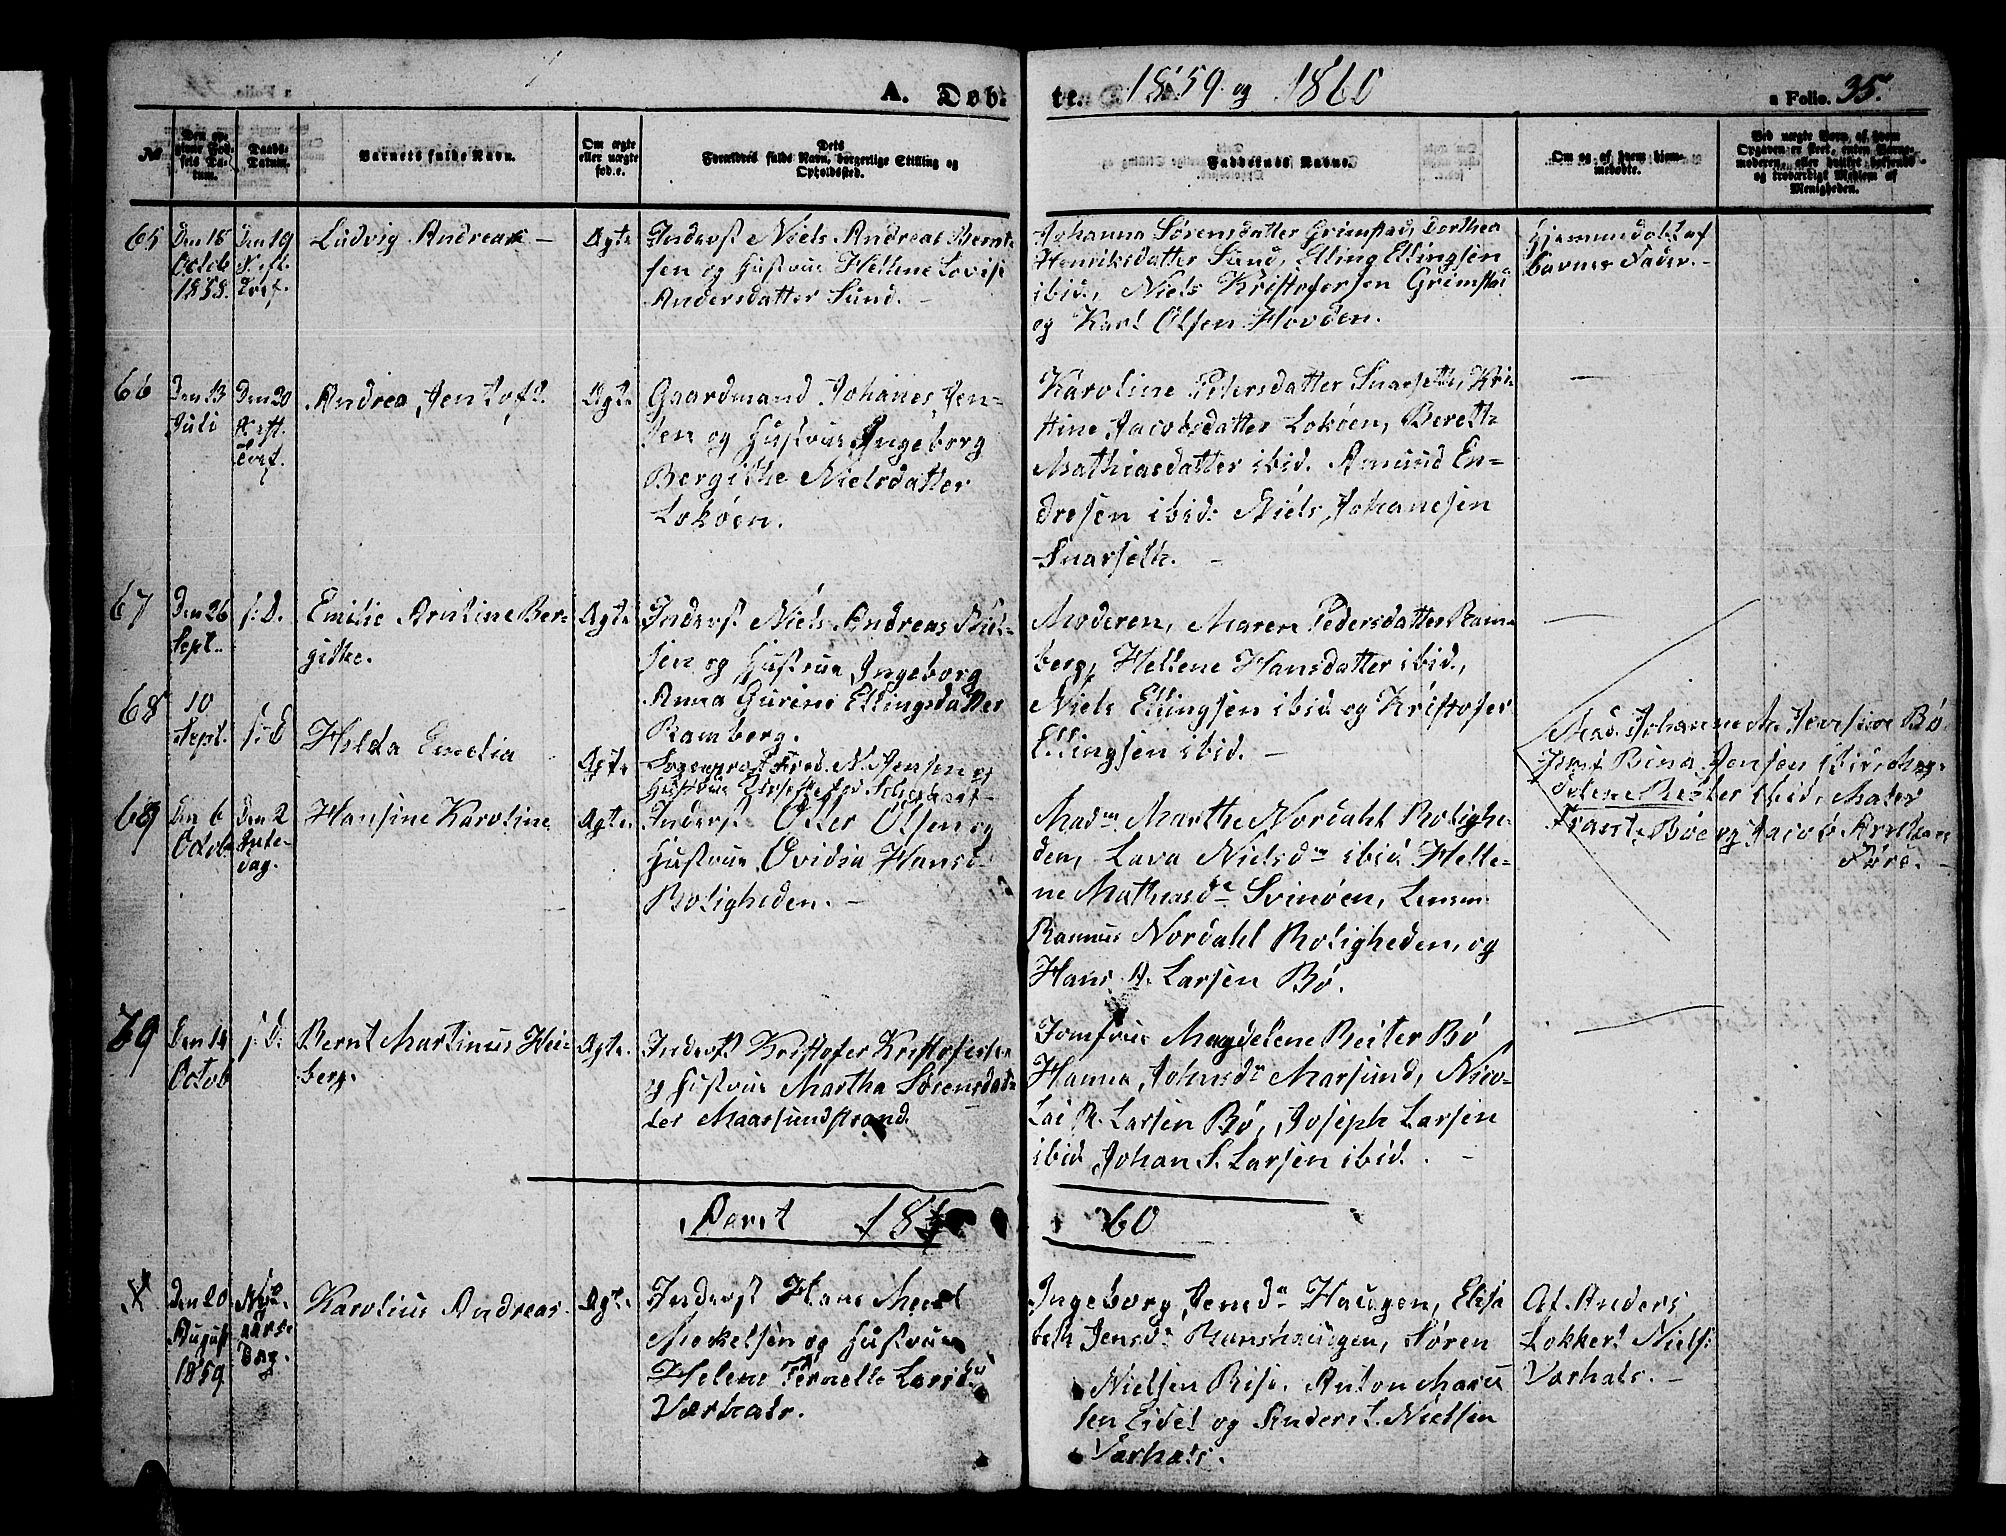 A. Døb-
te. 1859 og 1860
a Folio. 35.
№
Den opgivne Fødsels Datum.
Daabs-Datum.
Barnets fulde Navn.
Om ægte eller uægte fød.e.
Dets Forældres fulde Navn, borgerlige Stilling og Opholdssted.
Faddernes Navne.
Om og af hvem hjemmedøbte.
Ved uægte Børn, af hvem Opgaven er skeet, enten Barnemoderen, eller hvilket bekjendt og troværdigt Medlem af Menigheden.
65
Den 18
Octob
Den 19
Ludvig Andreas -
Ægte
Inderst Niels Andreas Bernt-
sen og Hustrue Hellene Lovise
Andersdatter Sund. -
Johanna Sørensdatter Grimstad, Dorthea
Henriksdatter Sund, Elling Ellingsen
ibid, Niels Kristofersen Grimstad
og Karl Olsen Hovden.
Hjemmedøbt af
barnets Fader. -
66
Den 13
Juli
Den 20
Andrea Jentoft.
Ægte
Gaardmand Johanes Jen-
sen og Hustrue Ingeborg
Bergithe Nielsdatter
Lokøen.
Karoline Pedersdatter Snarseth, Kri-
stine Jacobsdatter Lokøen, Berett
Mathiasdatter ibid. Amund En-
dresen ibid. Niels Johanesen
Snarseth. -
67
Den 26
Sept.
s: D.
Emilie Kristine Ber-
githe.
Ægte
Inderst Niels Andreas
sen og Hustrue Ingeborg
Anna Gurine Ellingsdatter
Ramberg.
Moderen, Maren Pedersdatter Ram-
berg, Hellene Hansdatter ibid.,
Niels Ellingsen ibid og Kristofer
Ellingsen ibid. -
68
10
Sept.
s: D
Helda Emelia
Ægte
Sogneprest Fred. N. Jensen og
Hustrue
Mad. Johanne M. Jevesine Bø
Jomf. Bina Jensen ibid. Mag-
delene Reiter ibid,
Bø og Jacob
Føre. -
69
Den 6
Octob
Den 2
Jule-
dag.
Hansine Karoline
Ægte
Inderst Oller Olsen og
Hustrue Ovidia Hansd
Roligheden. -
Madm Marthe Nordahl Rolighe-
den, Lava Nielsdr ibid Helle-
ne Mathiasdr Svinøen, Lensm
Rasmus Nordahl Roligheden, og
Hans A. Larsen Bø.
70
Den 14
Octob
s: D.
Bernt Martinus Hei-
berg.
Ægte.
Inderst Kristofer Kristofersen
og Hustrue Martha Sørensdat-
ter Maarsundstrand.
Jomfrue Magdelene Reiter Bø
Hanna Johnsdr Marsund, Nico-
lai R. Larsen Bø, Joseph Larsen
ibid Johan S. Larsen ibid. -
Aaret 18
60
Den 20
August
1859
Nyt-
aars-
Dag.
Karolius Andreas.
Ægte.
Inderst Hans Meel
Mekelsen og Hustrue
Helene Pernelle Larsd
Varhals.
Ingeborg Jensdr Haugen, Elisa
beth Jensdr Ramshaugen, Søren
Nielsen Risø. Anton Mari
sen Eidet og Anders L. Nielsen
Varhals.
Af Anders
Lokkert Niels:
Varhals. -